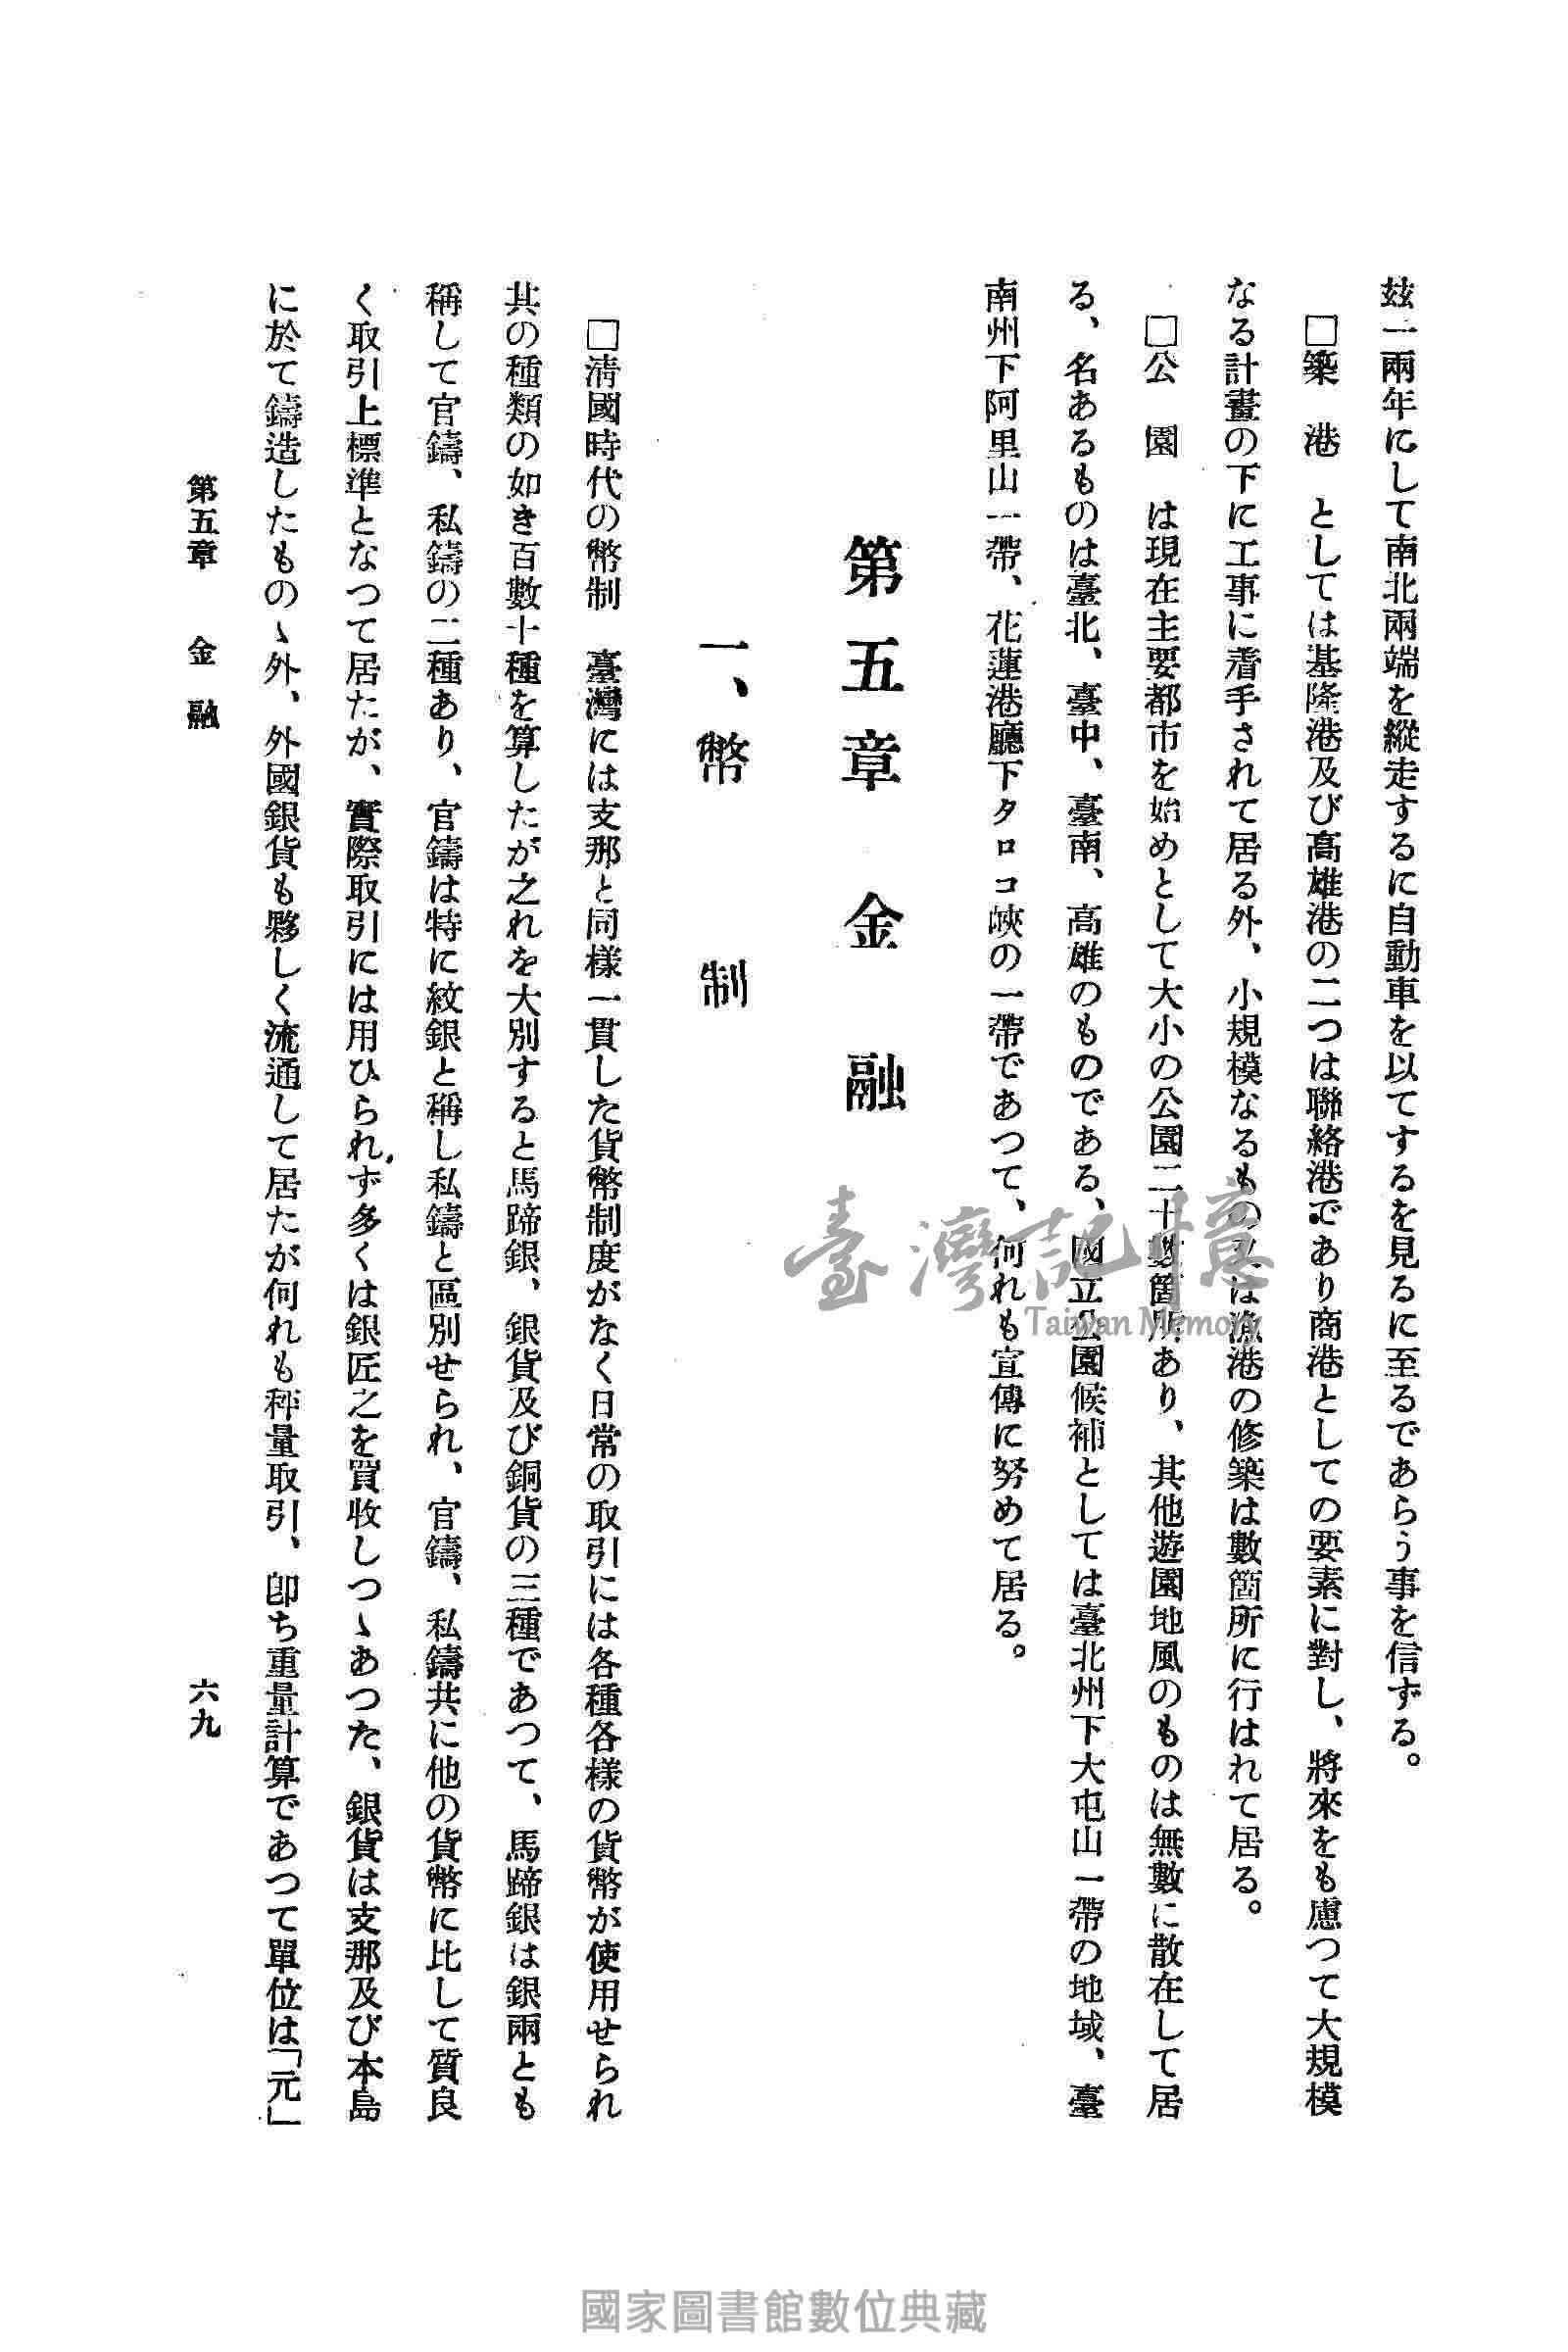 玆一兩年にして南北兩端を縱走するに自動車を以てするを見るに至るであらう事を信ずる。
□築　港　としては基隆港及び高雄港の二つは聯絡港であり商港としての要素に對し、將來をも慮つて大規模
なる計畫の下に工事に着手されて居る外、小規模なるもの又は漁港の修築は數箇所に行はれて居る。
□公　園　は現在主要都市を始めとして大小の公園二十數箇所あり、其他遊園地風のものは無數に散在して居
る、名あるものは臺北、臺中、臺南、高雄のものである、國立公園候補としては臺北州下大屯山一帶の地域、臺
南州下阿里山一帶、花蓮港廳下タロコ峽の一帶であつて、何れも宣傳に努めて居る。
第五章　金　融
一、幣　制
□淸國時代の幣制　臺灣には支那と同樣一貫した貨幣制度がなく日常の取引には各種各樣の貨幣が使用せられ
其の種類の如き百數十種を算したが之れを大別すると馬蹄銀、銀貨及び銅貨の三種であつて、馬蹄銀は銀兩とも
稱して官鑄、私鑄の二種あり、官鑄は特に紋銀と稱し私鑄と區別せられ、官鑄、私鑄共に他の貨幣に比して質良
く取引上標準となつて居たが、實際取引には用ひられず多くは銀匠之を買收しつゝあつた、銀貨は支那及び本島
に於て鑄造したものゝ外、外國銀貨も夥しく流通して居たが何れも秤量取引、卽ち重量計算であつて單位は「元」
第五章　金　融
六九
臺灣記憶
Taiwan Memory
國家圖書館數位典藏